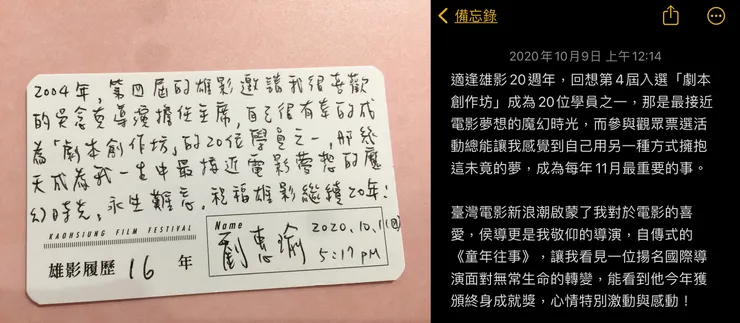 2004年，第四屆的雄影邀請我很喜歡
的吳念真導演擔任主席，自己很有幸的成
為「劇本創作坊」的20位學員之一，那幾
天成為我一生中最接近電影夢想的魔
幻時光，永生難忘，祝福雄影繼續20年！
KAOHSIUNG FILM FESTIVAL
雄影履歷 16 年
Name
劉惠瑜
2020.10.11(日)
5:17 PM
備忘錄
2020年10月9日 上午12:14
適逢雄影20週年，回想第4屆入選「劇本
創作坊」成為20位學員之一，那是最接近
電影夢想的魔幻時光，而參與觀眾票選活
動總能讓我感覺到自己用另一種方式擁抱
這未竟的夢，成為每年11月最重要的事。
臺灣電影新浪潮啟蒙了我對於電影的喜
愛，侯導更是我敬仰的導演，自傳式的
《童年往事》，讓我看見一位揚名國際導
演面對無常生命的轉變，能看到他今年獲
頒終身成就獎，心情特別激動與感動！